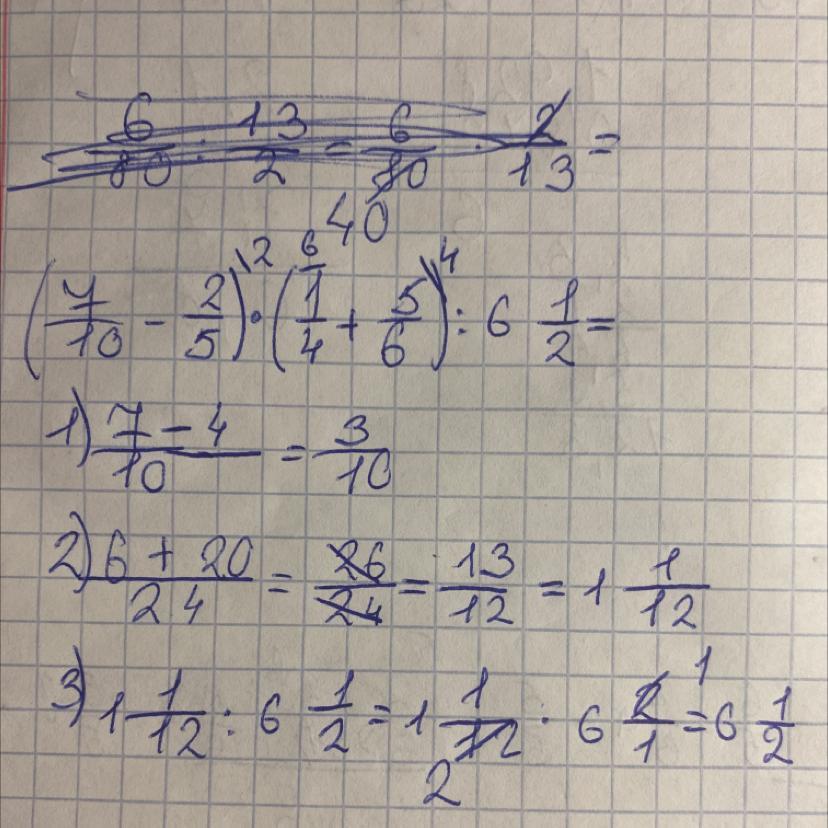 6/80 : 13/2 = 6/80 · 2/13 =
40
(7/10 - 2/5)\2 · (6/ 1/4 + 5/6)\4 : 6 1/2 =
1) 7-4/10 = 3/10
2) 6+20/24 = 26/24 = 13/12 = 1 1/12
3) 1 1/12 : 6 1/2 = 1 1/12 · 6 2/1 = 6 1/2
2 1